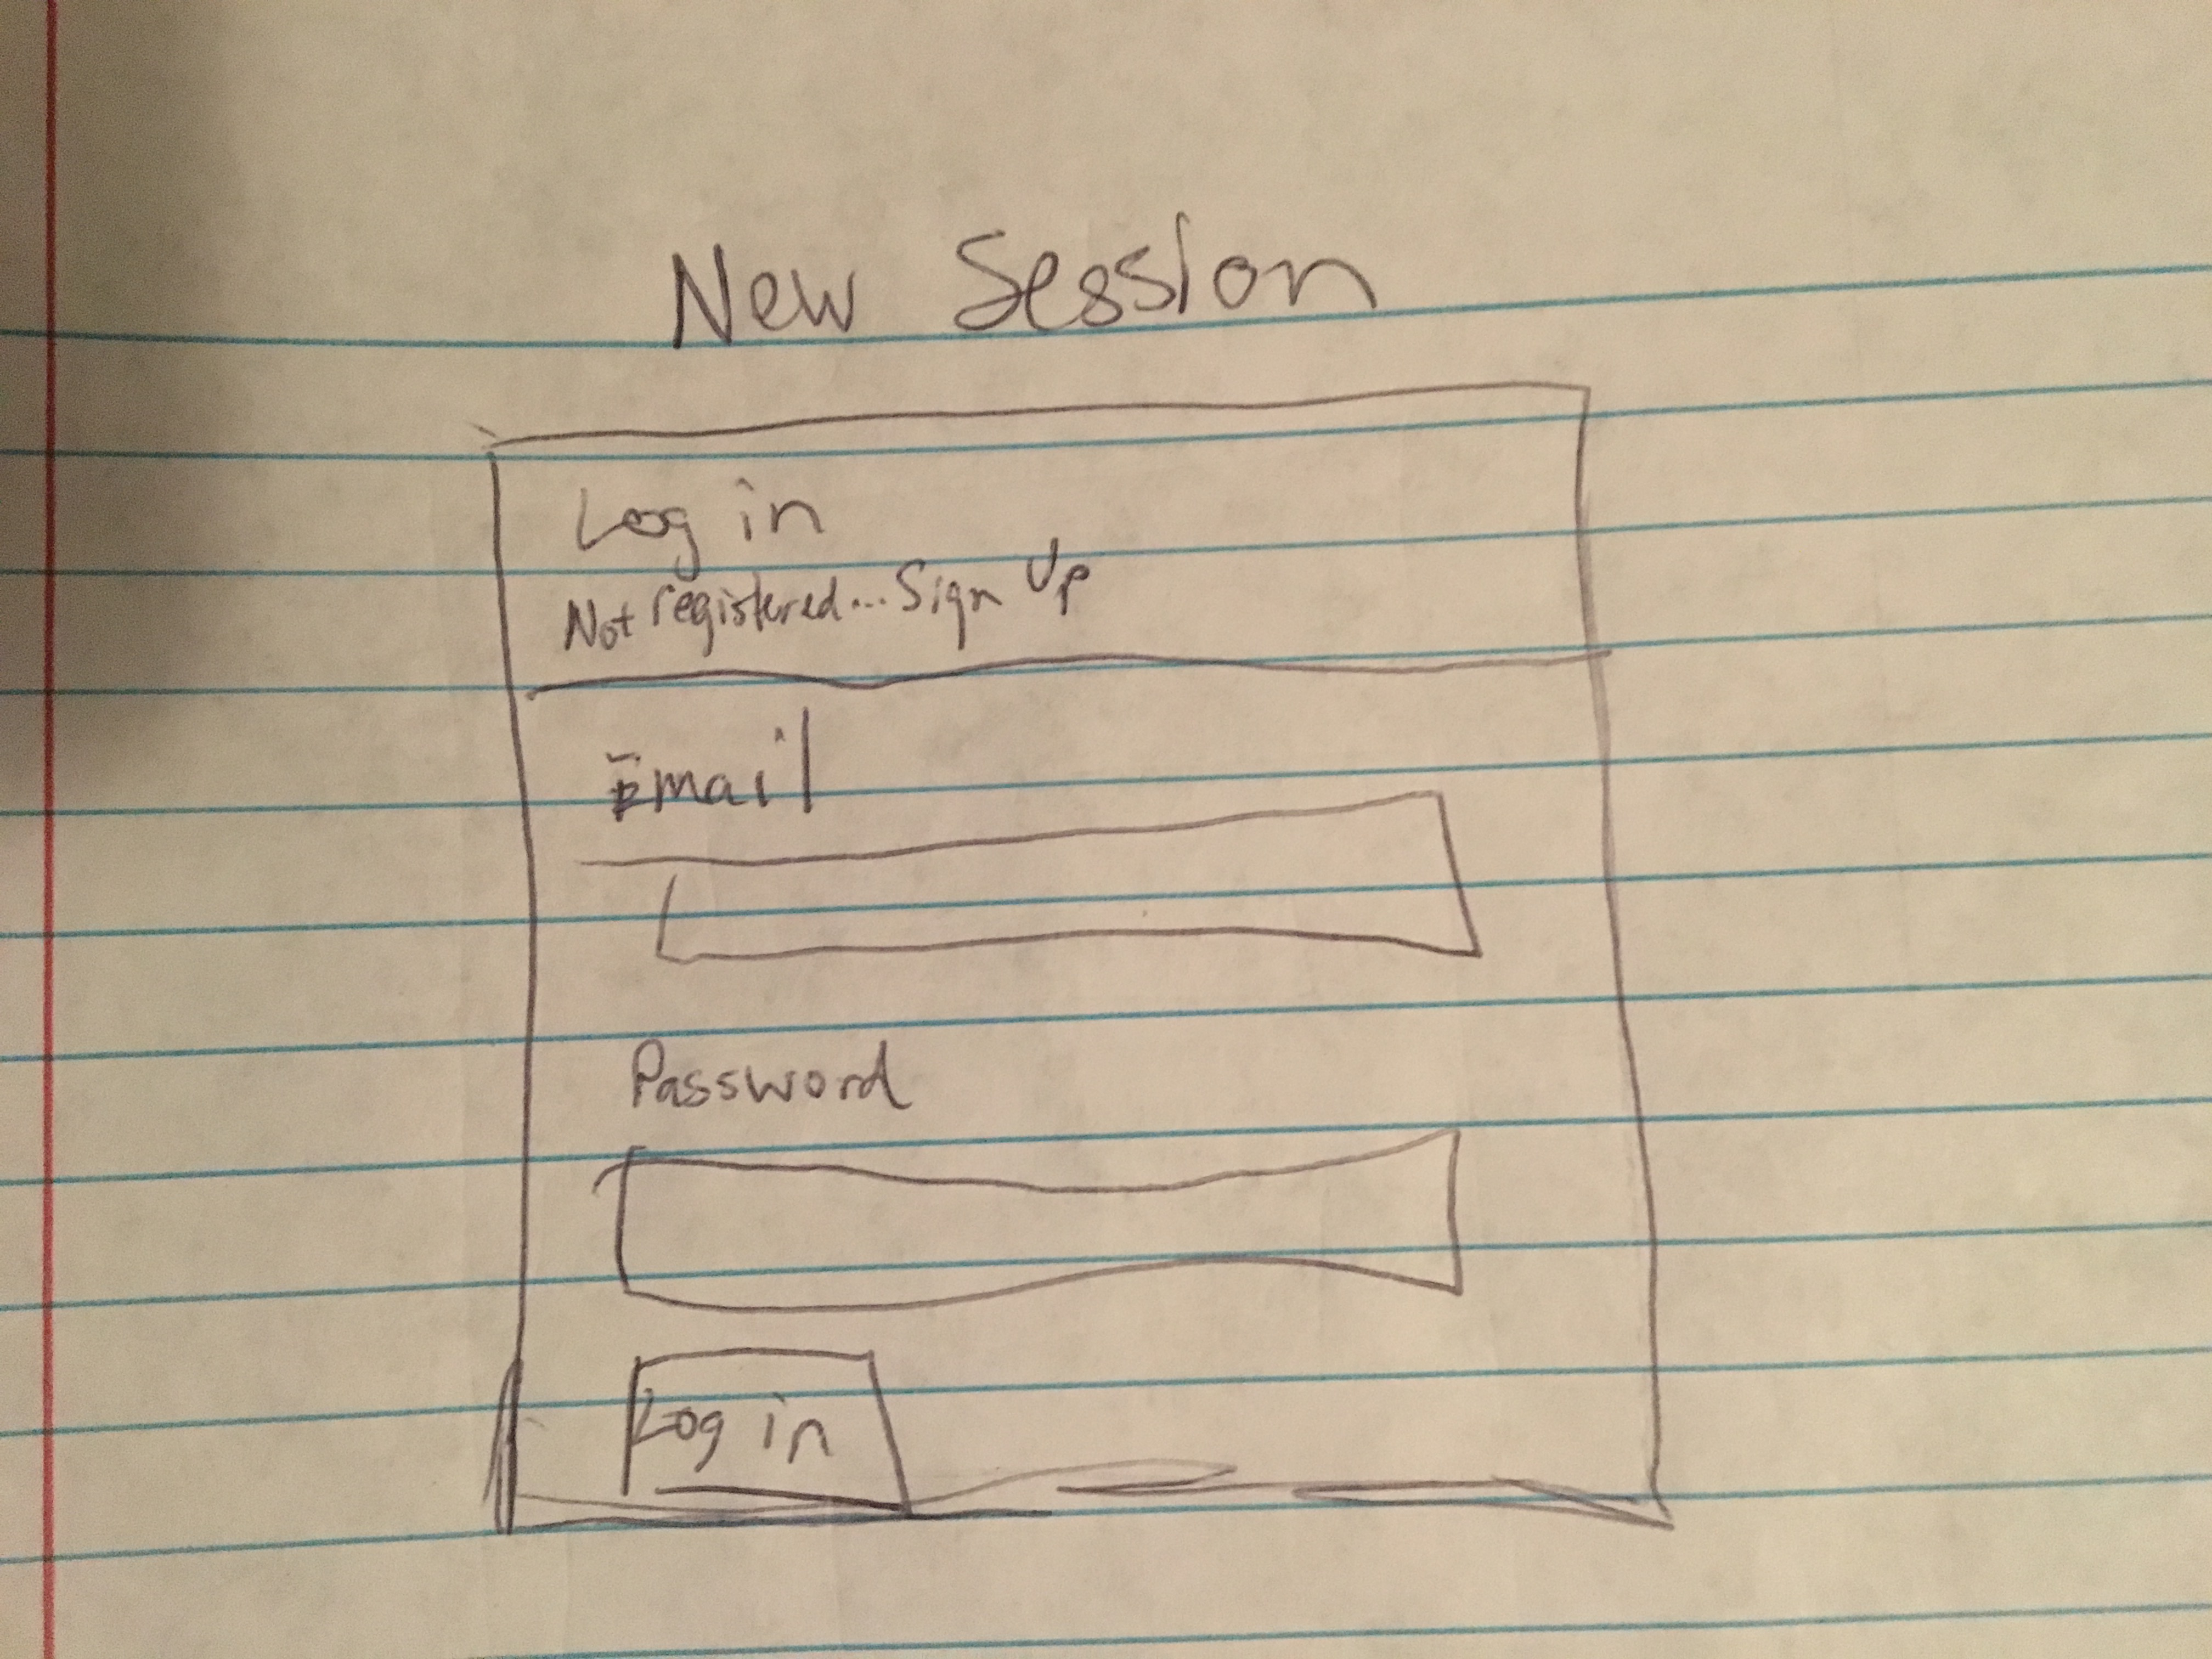 New Session
Log in
Not registered... Sign Up
Email
Password
Log in